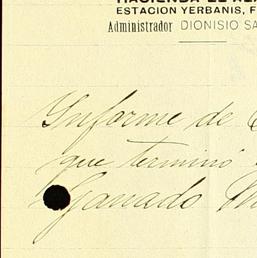 HACIENDA EL
ESTACION YERBANIS, F
Administrador DIONISIO SA
Informe de
que terminó
Ganado